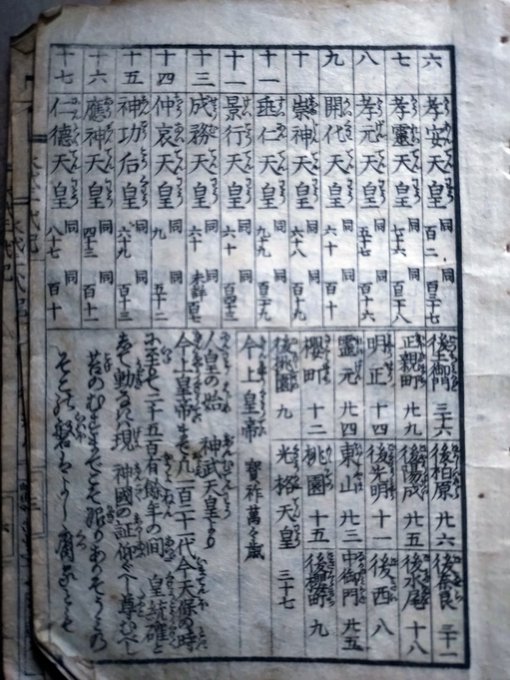 六 孝安天皇 同 百二 同 百三十七
七 孝靈天皇 同 七十六 同 百二十八
八 孝元天皇 同 五十七 同 百十六
九 開化天皇 同 六十 同 百十一
十 崇神天皇 同 六十八 同 百十九
十一 垂仁天皇 同 九十九 同 百三十九
十二 景行天皇 同 六十 同 百四十三
十三 成務天皇 同 六十
十四 仲哀天皇 同 九 同 五十二
十五 神功后皇 同 六十九 同 百十三
十六 應神天皇 同 四十三 同 百十一
十七 仁德天皇 同 八十七 同 百十
後土御門 三十六 後柏原 廿六 後奈良 三十一
正親町 廿九 後陽成 廿五 後水尾 十八
明正 十四 後光明 十一 後西 八
靈元 廿四 東山 廿三 中御門 廿五
櫻町 十二 桃園 十五 後櫻町 九
後桃園 九 光格天皇 三十七
今上皇帝 寳祚萬々歳
人皇の始 神武天皇より
今上皇帝まで凡百二十一代今天保の時
二千五百有餘年の間 皇統確と
して動ざるは現 神國の証仰ぐべし尊むべし